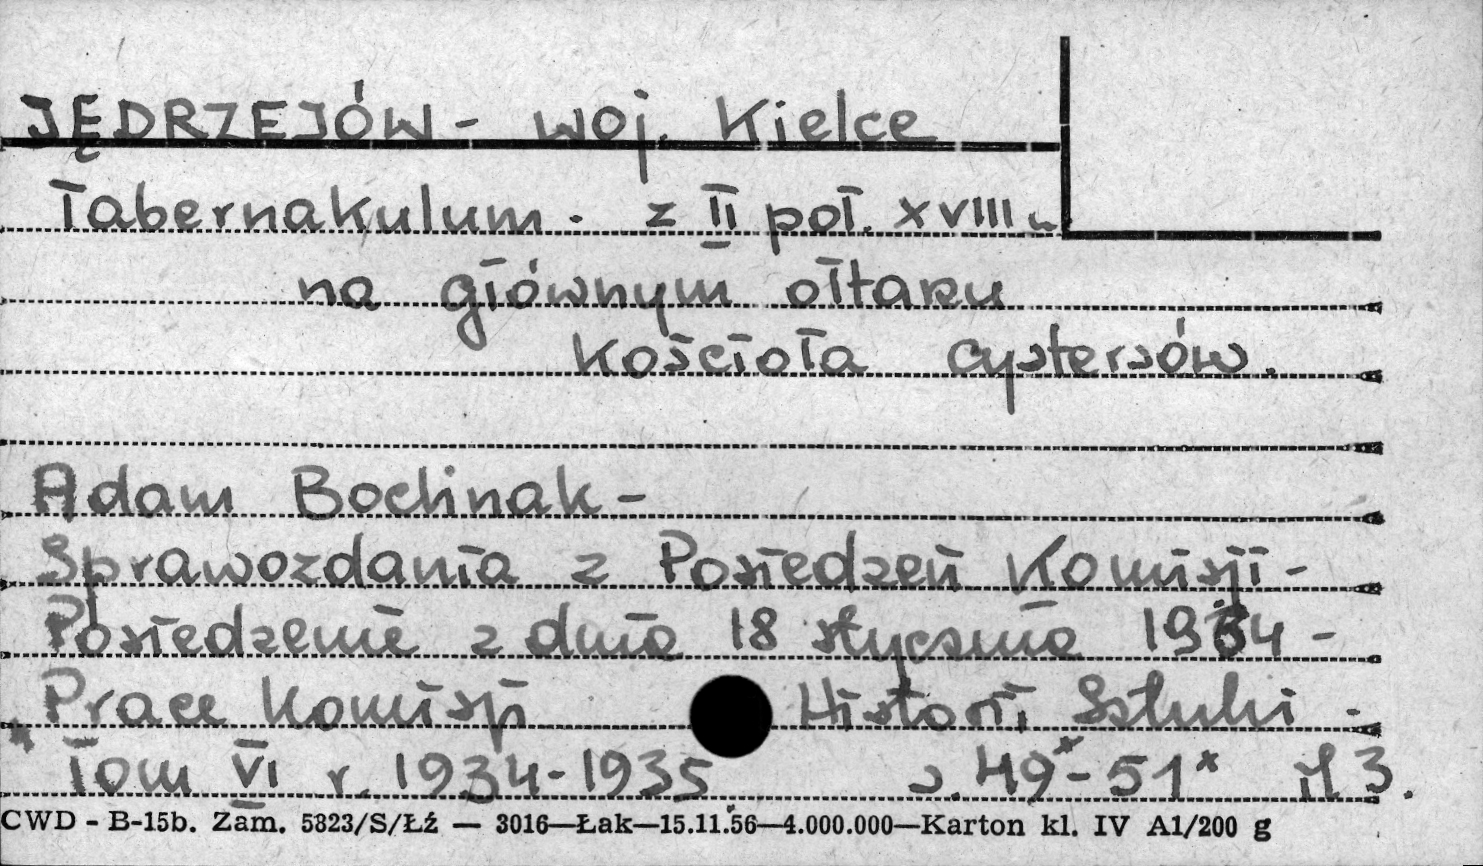 JĘDRZEJÓW - woj. Kielce
Tabernakulum - z II poł. XVIII w
na głównym ołtarzu
Kościoła cystersów.
Adam Bochnak -
Sprawozdania z Posiedzeń Komisji -
Posiedzenie z dnia 18 stycznia 1934 -
Prace Komisji Historii Sztuki -
Tom VI r. 1934-1935 s. 49*-51* il 3.
CWD - B-15b. Zam. 5323/S/Łź — 3016—Łak—15.11.56—4.000.000—Karton kl. IV A1/200 g